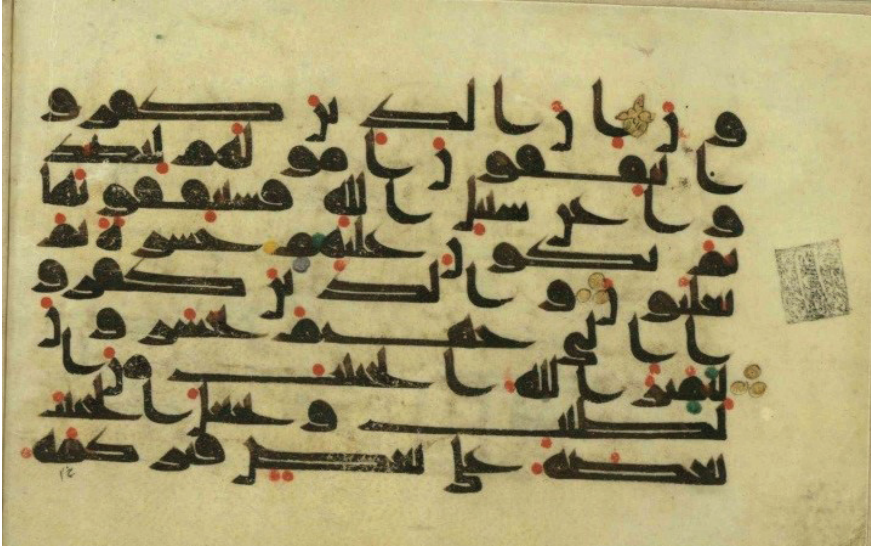 ون ان الذين كفرو
ا ينفقون امولهم ليصد
وا عن سبيل الله فسينفقونها
ثم تكون عليهم حسرة ثم
يغلبون والذين كفرو
ا الى جهنم يحشرون
ليميز الله الخبيث من ا
لطيب ويجعل الخبيث
بعضه على بعض فيركمه